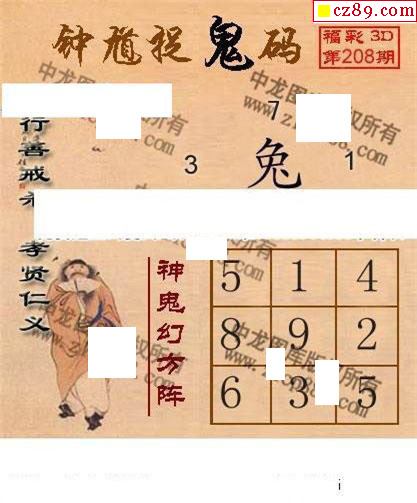 cz89.com
钟馗捉鬼码
福彩 3D
第208期
行善戒
孝贤仁义
7
3
1
兔
神鬼幻方阵
5 1 4
8 9 2
6 3 5
中龙图库版权所有
i